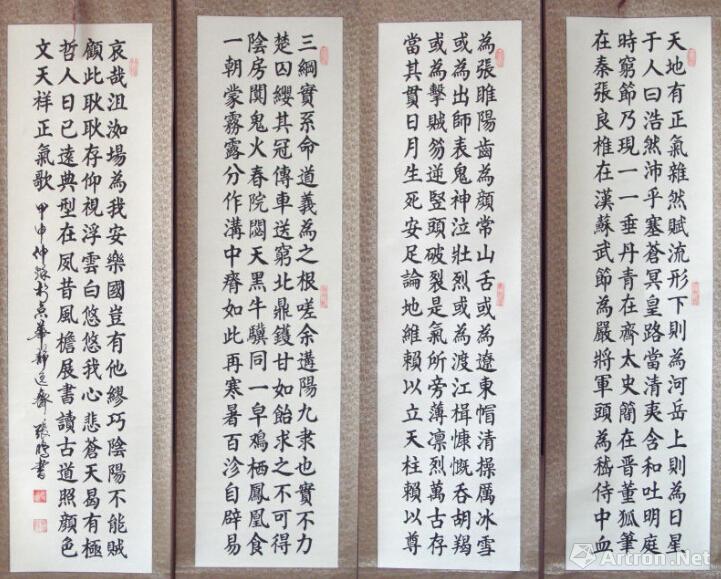 天地有正氣雜然賦流形下則為河岳上則為日星
于人曰浩然沛乎塞蒼冥皇路當清夷含和吐明庭
時窮節乃現一一垂丹青在齊太史簡在晉董狐筆
在秦張良椎在漢蘇武節為嚴將軍頭為嵇侍中血
為張睢陽齒為顏常山舌或為遼東帽清操厲冰雪
或為出師表鬼神泣壯烈或為渡江楫慷慨吞胡羯
或為擊賊笏逆竪頭破裂是氣所旁薄凛烈萬古存
當其貫日月生死安足論地維賴以立天柱賴以尊
三綱實系命道義為之根嗟余遘陽九隶也實不力
楚囚纓其冠傳車送窮北鼎鑊甘如飴求之不可得
陰房闃鬼火春院閟天黑牛驥同一皁鷄栖鳳凰食
一朝蒙霧露分作溝中瘠如此再寒暑百沴自辟易
哀哉沮洳場為我安樂國豈有他繆巧陰陽不能賊
顧此耿耿存仰視浮雲白悠悠我心悲蒼天曷有極
哲人日已遠典型在夙昔風檐展書讀古道照顏色
文天祥正氣歌 甲申仲 於京華靜 齋 張 書
Artron.Net